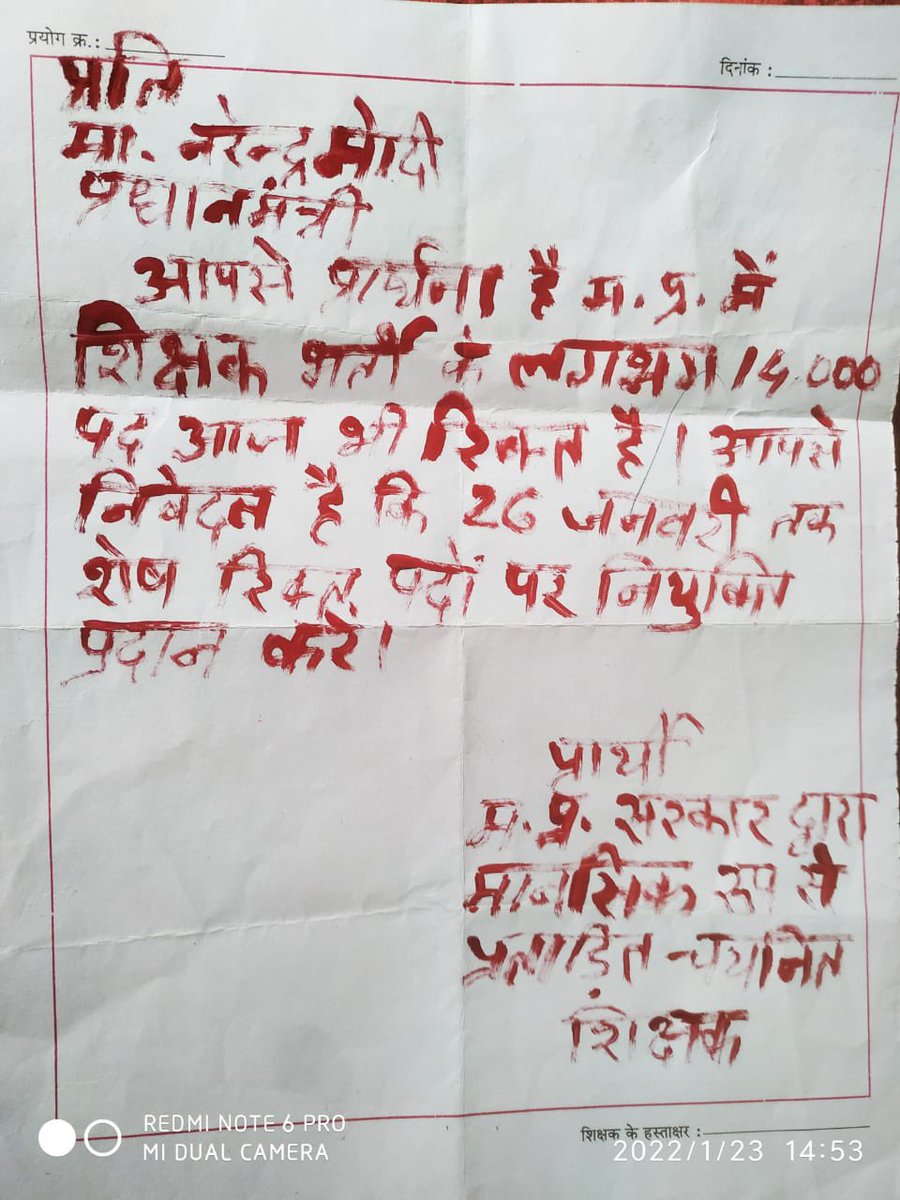 प्रयोग क्र.:
दिनांक :
प्रति
मा. नरेन्द्र मोदी
प्रधानमंत्री
आपसे प्रार्थना है म. प्र. में
शिक्षक भर्ती के लगभग 14000
पद आज भी रिक्त है। आपसे
निवेदन है कि 26 जनवरी तक
शेष रिक्त पदों पर नियुक्ति
प्रदान करे।
प्रार्थी
म. प्र. सरकार द्वारा
मानसिक रूप से
प्रताड़ित चयनित
शिक्षक
शिक्षक के हस्ताक्षर :
REDMI NOTE 6 PRO
MI DUAL CAMERA
2022/1/23 14:53